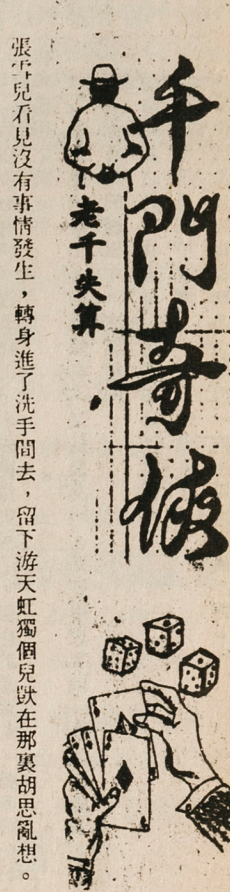 千門奇俠
老千失算
張雪兒看見沒有事情發生，轉身進了洗手間去，留下游天虹獨個兒獃在那裏胡思亂想。